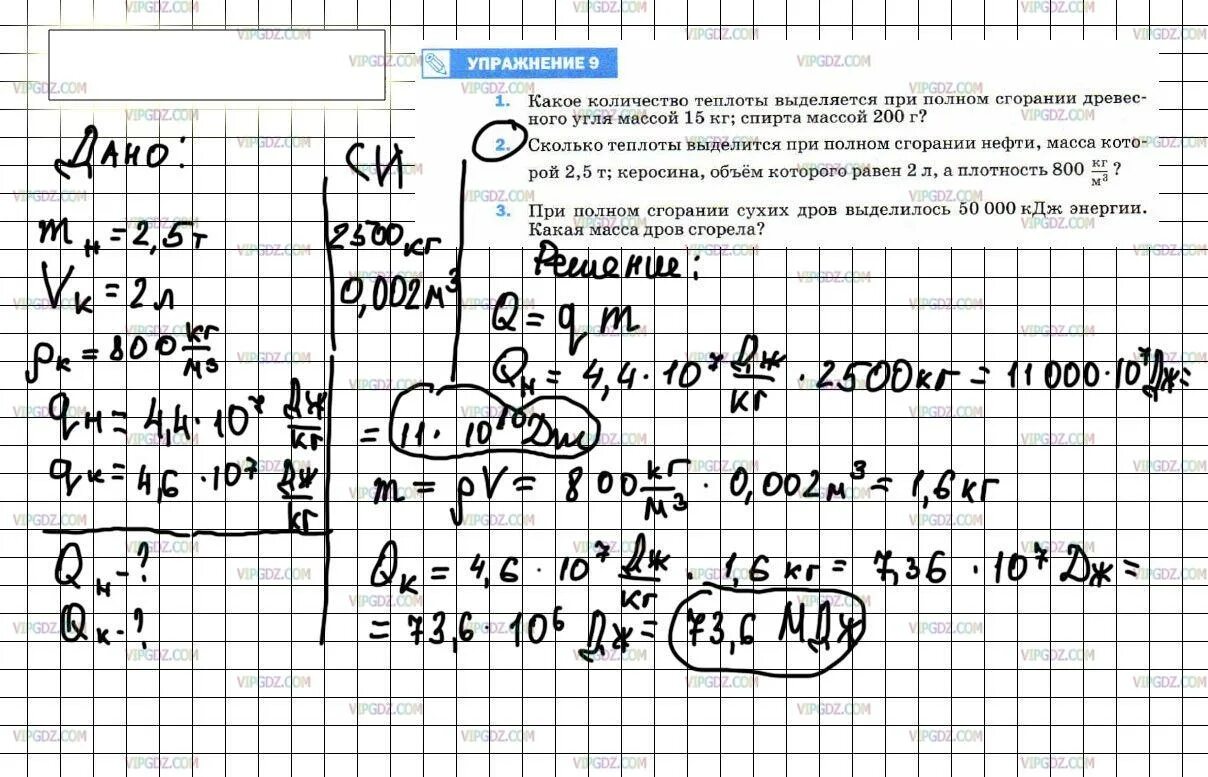 УПРАЖНЕНИЕ 9
1. Какое количество теплоты выделяется при полном сгорании древес-
ного угля массой 15 кг; спирта массой 200 г?
2. Сколько теплоты выделится при полном сгорании нефти, масса кото-
рой 2,5 т; керосина, объём которого равен 2 л, а плотность 800 кг/м³ ?
3. При полном сгорании сухих дров выделилось 50 000 кДж энергии.
Какая масса дров сгорела?
Дано:
СИ
mн = 2,5 т
2500 кг
Vк = 2 л
0,002 м³
ρк = 800 кг/м³
qн = 4,4 · 10⁷ Дж/кг
qк = 4,6 · 10⁷ Дж/кг
Qн - ?
Qк - ?
Решение:
Q = q m
Qн = 4,4 · 10⁷ Дж/кг · 2500 кг = 11 000 · 10⁷ Дж =
= 11 · 10¹⁰ Дж
m = ρV = 800 кг/м³ · 0,002 м³ = 1,6 кг
Qк = 4,6 · 10⁷ Дж/кг · 1,6 кг = 7,36 · 10⁷ Дж =
= 73,6 · 10⁶ Дж = 73,6 МДж
VIPGDZ.COM